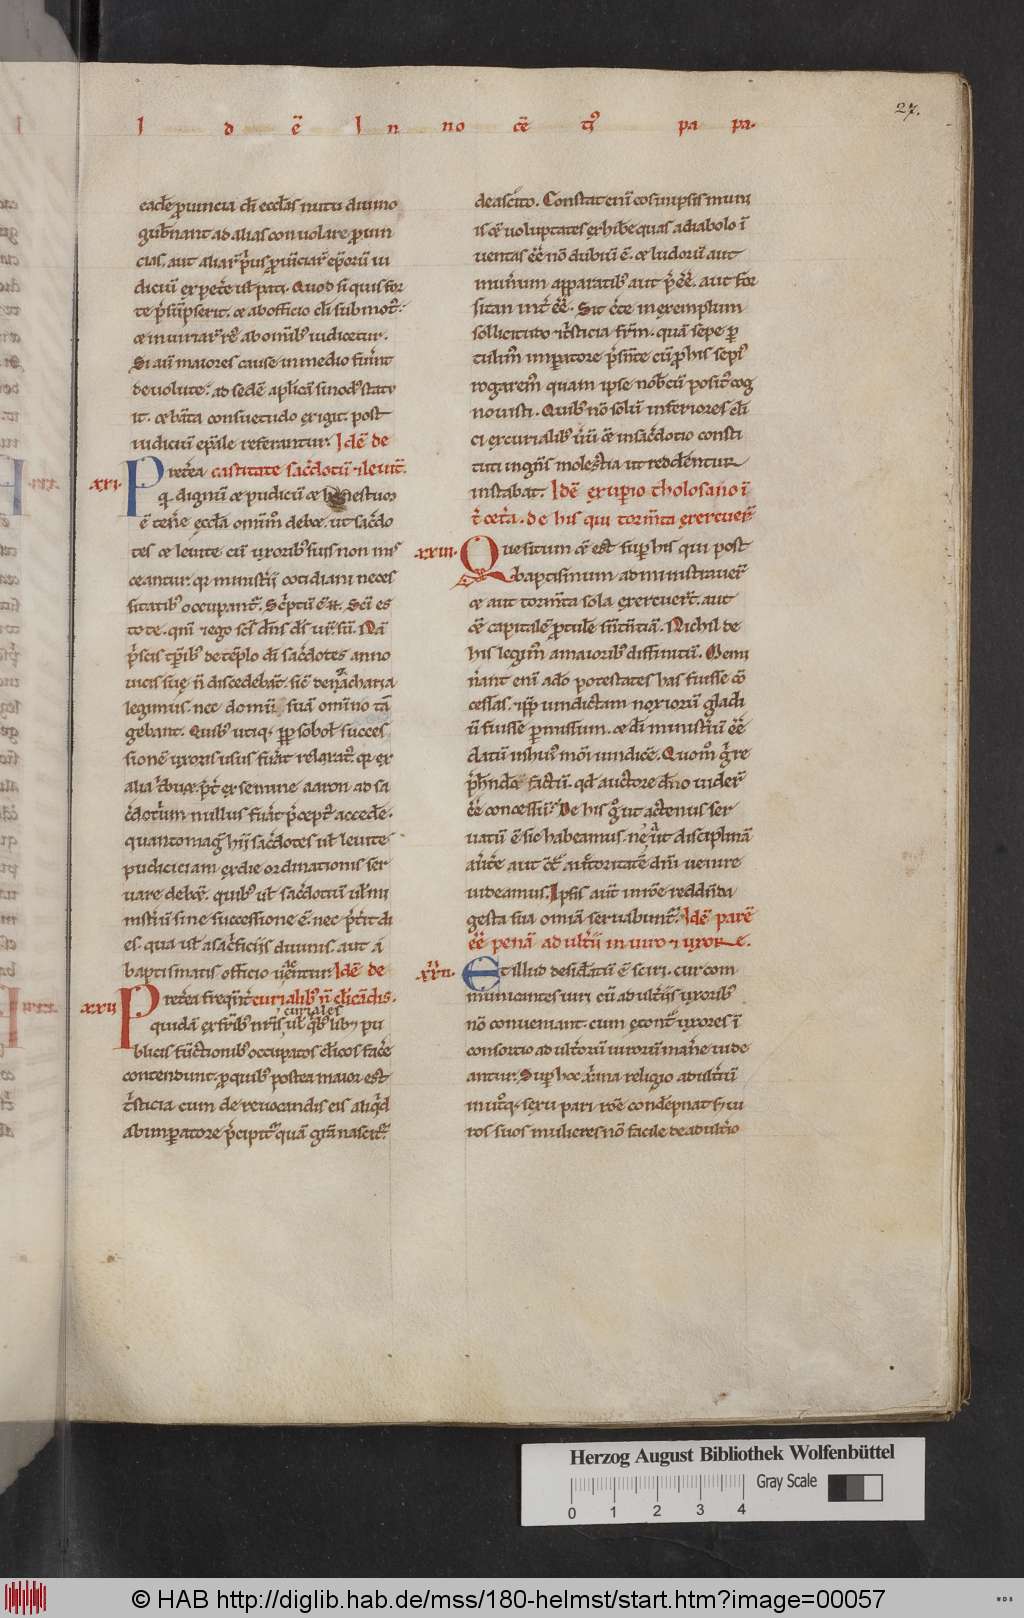 27.
I d ē I n no cē tꝰ pa pa.
eadē ꝓuincia dī ecclīis nutu diuino
gub̄nant ad alias conuolare ꝓuin
cias. aut aliar̄ p̄us ꝓuīciar̄ ep̄orū iu
diciū exꝑet̄e ul̄ pati. Quod si quis for
te p̄sūpserit. ⁊ ab officio cl̄i submotꝰ.
⁊ iniuriar̄ reꝰ ab om̄ibꝰ iudicetur.
Si aū maiores cause in medio fuerīt
deuolute. ad sedē aplicā sinodꝰ statu
it. ⁊ bāta consuetudo exigit. post
iudiciū ep̄ale referantur. Idē de
xxi. Pret̄ea castitate sac̄dotū ⁊ leuit̄.
q̄ dignū ⁊ pudicū ⁊ honestuɜ
ē ten̄e ęccl̄a om̄īmō debꝫ. ut sac̄do
tes ⁊ leuite cū uxoribꝰ suis non mis
ceantur. qꝛ ministerii cotidiani neces
sitatibꝰ occupant̄. Sc̄ptū ē n̄. Sc̄i es
tote. qm̄ ⁊ ego sc̄s sū dn̄s ds̄ ur̄. Nā
p̄scis tꝑibꝰ de tēplo dī sac̄dotes anno
uicis suę n̄ discedebāt. sic̄ de zacharia
legimus. nec domū suā om̄ino tā
gebant. Quibꝰ utiqꝫ ꝓpt̄ sobol̄ succes
sionē uxoris usus fuerat relaxatꝰ. qꝛ ex
alia tribu ⁊ p̄t̄ ex semine aaron ad sa
c̄dotium nullus fuerat p̄ceptꝰ accedē.
quanto magꝭ hii sac̄dotes ul̄ leuite
pudiciciam ex die ordinationis ser
uare debēt. quibꝰ ul̄ sac̄dotiū ul̄ mi
nisteriū sine successione ē. nec p̄t̄it di
es. qua ul̄ a sac̄ficiis diuinis. aut a
baptismatis officio uacentur. Idē de
xxii Pret̄ea freqn̄t̄ curialibꝰ n̄ cl̄icādis.
curiales
quidā ex fr̄ibꝰ nr̄is ul̄ qibꝰlibꝫ pu
blicis fūctionibꝰ occupatos cl̄icos fac̄e
contendunt. ꝓ quibꝰ postea maior est
t̄sticia cum de reuocandis eis aliqid
ab imꝑatore p̄cipitꝰ quā gr̄a nascit̄.
de ascito. Constat enī eos in ipsis muni
is ⁊ uoluptates exhibe quas a diabolo ī
uentas eē nō dubiū ē. ⁊ ludorū aut
munerum apparatibꝰ aut p̄eē. aut for
sitan int̄eē. Sit c̄te in exemplum
sollicitudo ⁊ t̄sticia fr̄m. quā sepe ꝑ
tulimꝰ imꝑatore p̄sn̄te cū ꝓ his sepiꝰ
rogaremꝰ quam ipse nob̄cū positꝰ cog
nouisti. Quibꝰ nō solū inferiores cl̄i
ci ex curialibꝰ ūū ⁊ in sac̄dotio consti
tuti ingēs molestia ut reddentur
instabat. Idē exuꝑio tholosano ī
t̄ cet̄a. de his qui torm̄ta exercuer̄
xxiii. Quesitum ⁊ est suꝑ his qui post
baptismum administrauer̄
⁊ aut torm̄ta sola exercuer̄t. aut
⁊ capitalē ꝓtulē sn̄tn̄tiā. Nichil de
his legimꝰ a maioribꝰ diffinitū. Memi
nerant enī a dō potestates has fuisse cō
cessas. ⁊ ꝓpt̄ uindictam noxiorū gladi
ū fuisse ꝑmissum. ⁊ dī ministerū eē
datū in huiꝰmōi uindicē. Quomō igr̄e
p̄hn̄dē factū. qd auctore dn̄o uider̄
eē concessū. De his gͦ ut actenus ser
uatū ē sic habeamus. ne ut disciplinā
auert̄e aut 9t̄ auctoritatē dn̄i uenire
uideamus. Ipsis aūt in rōe reddn̄da
gesta sua om̄ia seruabunt̄. Idē parē
eē penā adult̄ii in uiro ⁊ uxore.
xxiiii. Et illud desid̄atū ē sciri. cur com
municantes uiri cū adult̄iis uxoribꝰ
nō conueniant. cum ęcont̄ uxores ī
consortio adult̄orū uirorū man̄e uide
antur. Suꝑ hoc xp̄iana religio adult̄iū
in utroqꝫ sexu pari rōe condēpnat s; ui
ros suos mulieres nō facile de adult̄io
Herzog August Bibliothek Wolfenbüttel
0 1 2 3 4 Gray Scale
© HAB http://diglib.hab.de/mss/180-helmst/start.htm?image=00057